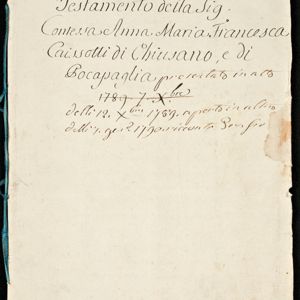 Testamento della Sig.
Contessa Anna Maria Francesca
Caissotti di Chiusano, e di
Pocapaglia presentato in atto
1789 7. Xbre
delli 12. Xbre 1789. aperto in altro
delli 7. 1790